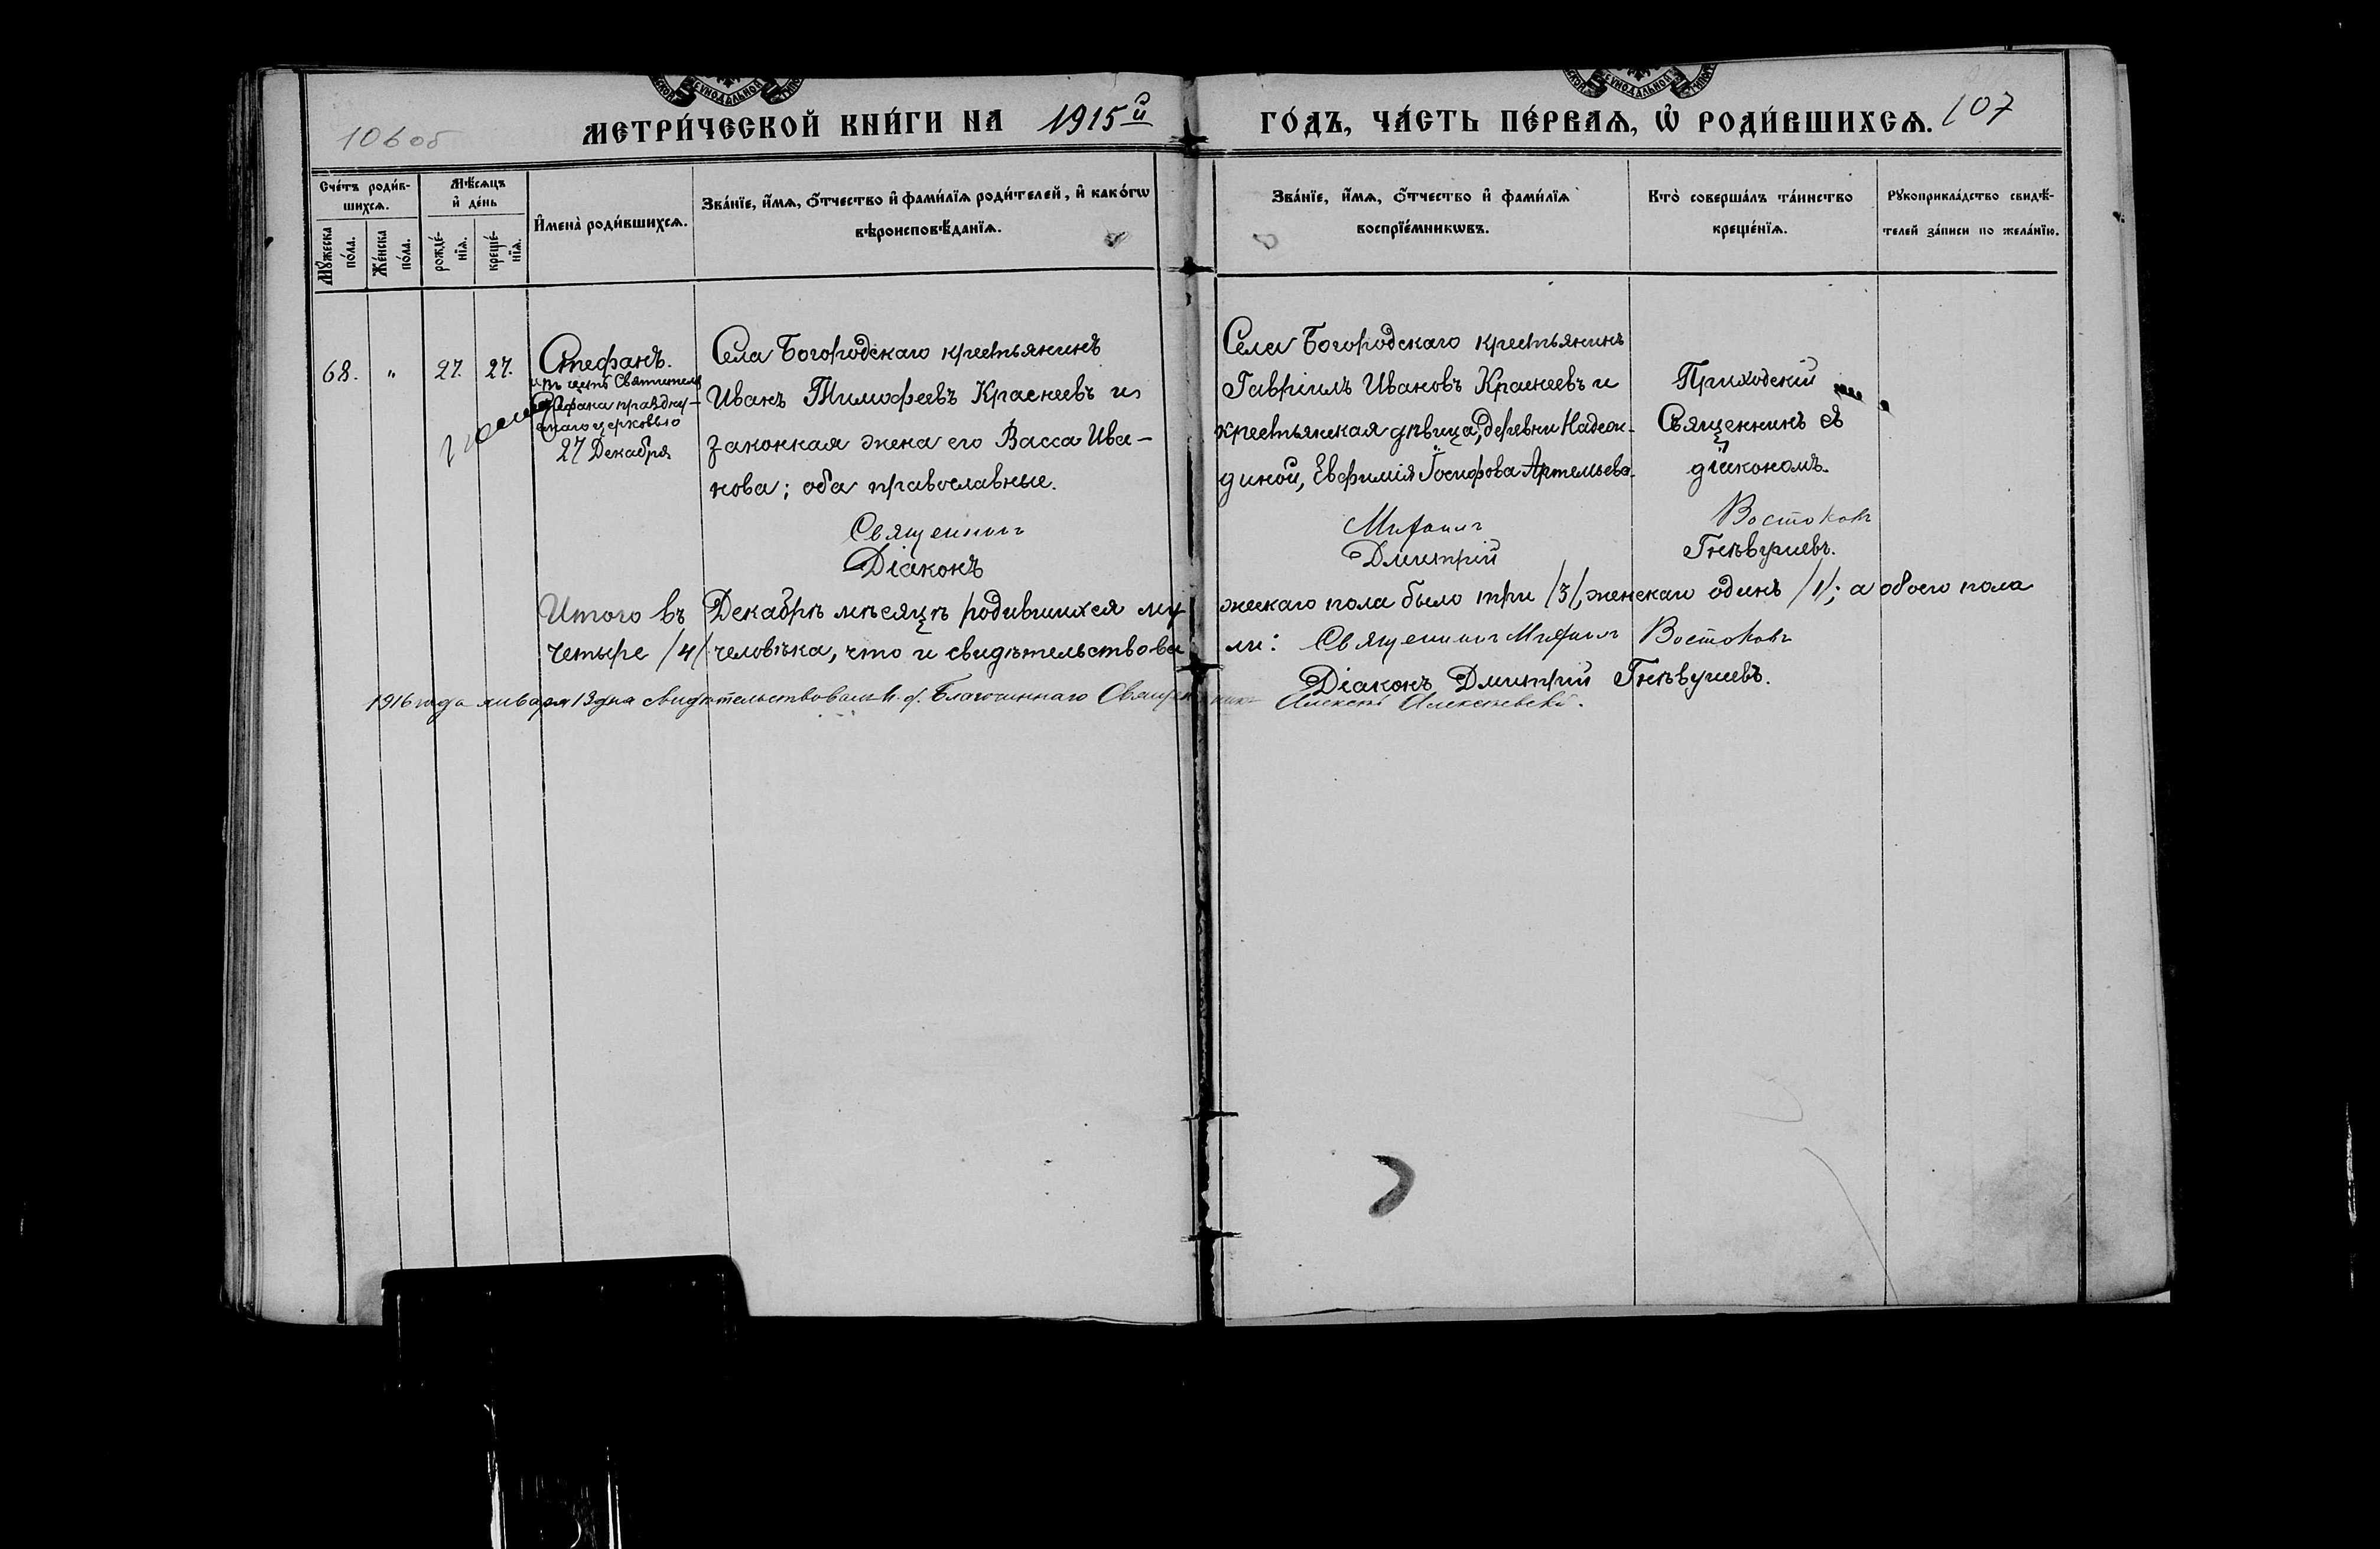 106 об
МЕТРИ́ЧЕСКОЙ КНИ́ГИ НА 1915й
ГО́ДЪ, ЧА́СТЬ ПЕ́РВАѦ, Ѡ҆ РОДИ́ВШИХСѦ. 107
Сче́тъ роди́в-
шихсѧ.
Мꙋ́жеска
по́ла.
Же́нска
по́ла.
Мѣ́сѧцъ
и҆ де́нь
рожде́-
нїѧ.
креще́-
нїѧ.
И҆мена̀ роди́вшихсѧ.
Зва́нїе, и҆́мѧ, ѻ҆́тчество и҆ фами́лїѧ роди́телей, и҆ како́гѡ
вѣроисповѣ́данїѧ.
Зва́нїе, и҆́мѧ, ѻ҆́тчество и҆ фами́лїѧ
воспрїе́мникѡвъ.
Кто̀ соверша́лъ та́инство
креще́нїѧ.
Рꙋкоприкла́дство свидѣ́-
телей за́писи по жела́нїю.
68. " 27. 27.
Стефанъ.
въ честь Святителя
Стефана праздну-
емаго церковью
27 Декабря
Села Богородскаго крестьянинъ
Иванъ Тимофеевъ Краснеевъ и
законная жена его Васса Ива-
нова; оба православные.
Священникъ
Діаконъ
Села Богородскаго крестьянинъ
Гавріилъ Ивановъ Краснеевъ и
крестьянская дѣвица, деревни Надеж-
диной, Евфимія Іосифова Артемьева.
Михаилъ
Дмитрій
Приходскій
Священникъ съ
діакономъ.
Востоковъ
Гнѣвушевъ.
Итого въ Декабрѣ мѣсяцѣ родившихся му-
жескаго пола было три /3/, женскаго одинъ /1/; а обоего пола
четыре /4/ человѣка, что и свидѣтельствова-
ли: Священникъ Михаилъ Востоковъ
Діаконъ Дмитрій Гнѣвушевъ.
1916 года января 13 дня свидѣтельствовалъ И. д. Благочиннаго Священникъ Алексѣй Алексѣевскій.